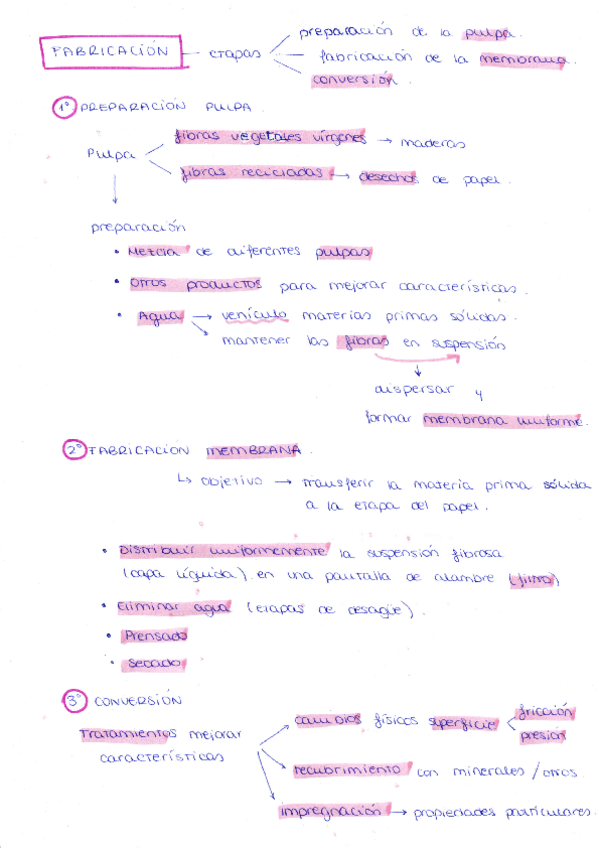 preparación de la pulpa.
FABRICACIÓN — etapas — fabricación de la membrana.
conversión.
1º PREPARACIÓN PULPA.
fibras vegetales vírgenes → maderas
Pulpa
fibras recicladas → desechos de papel.
preparación
• Mezcla de diferentes pulpas
• Otros productos para mejorar características.
• Agua → vehículo materias primas sólidas.
mantener las fibras en suspensión
dispersar y
formar membrana uniforme.
2º FABRICACIÓN MEMBRANA.
↳ objetivo → transferir la materia prima sólida
a la etapa del papel.
• Distribuir uniformemente la suspensión fibrosa
(capa líquida) en una pantalla de alambre (filtro)
• Eliminar agua (etapas de desagüe).
• Prensado
• Secado
3º CONVERSIÓN
Tratamientos mejorar
características
cambios físicos superficie
fricción
presión
recubrimiento con minerales / otros
impregnación → propiedades particulares.